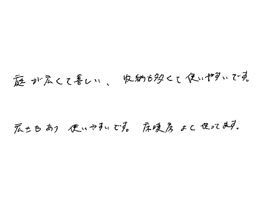 庭が広くて喜しい、収納も多くて使いやすいです。
広さもあり使いやすいです。床暖房よく使ってます。